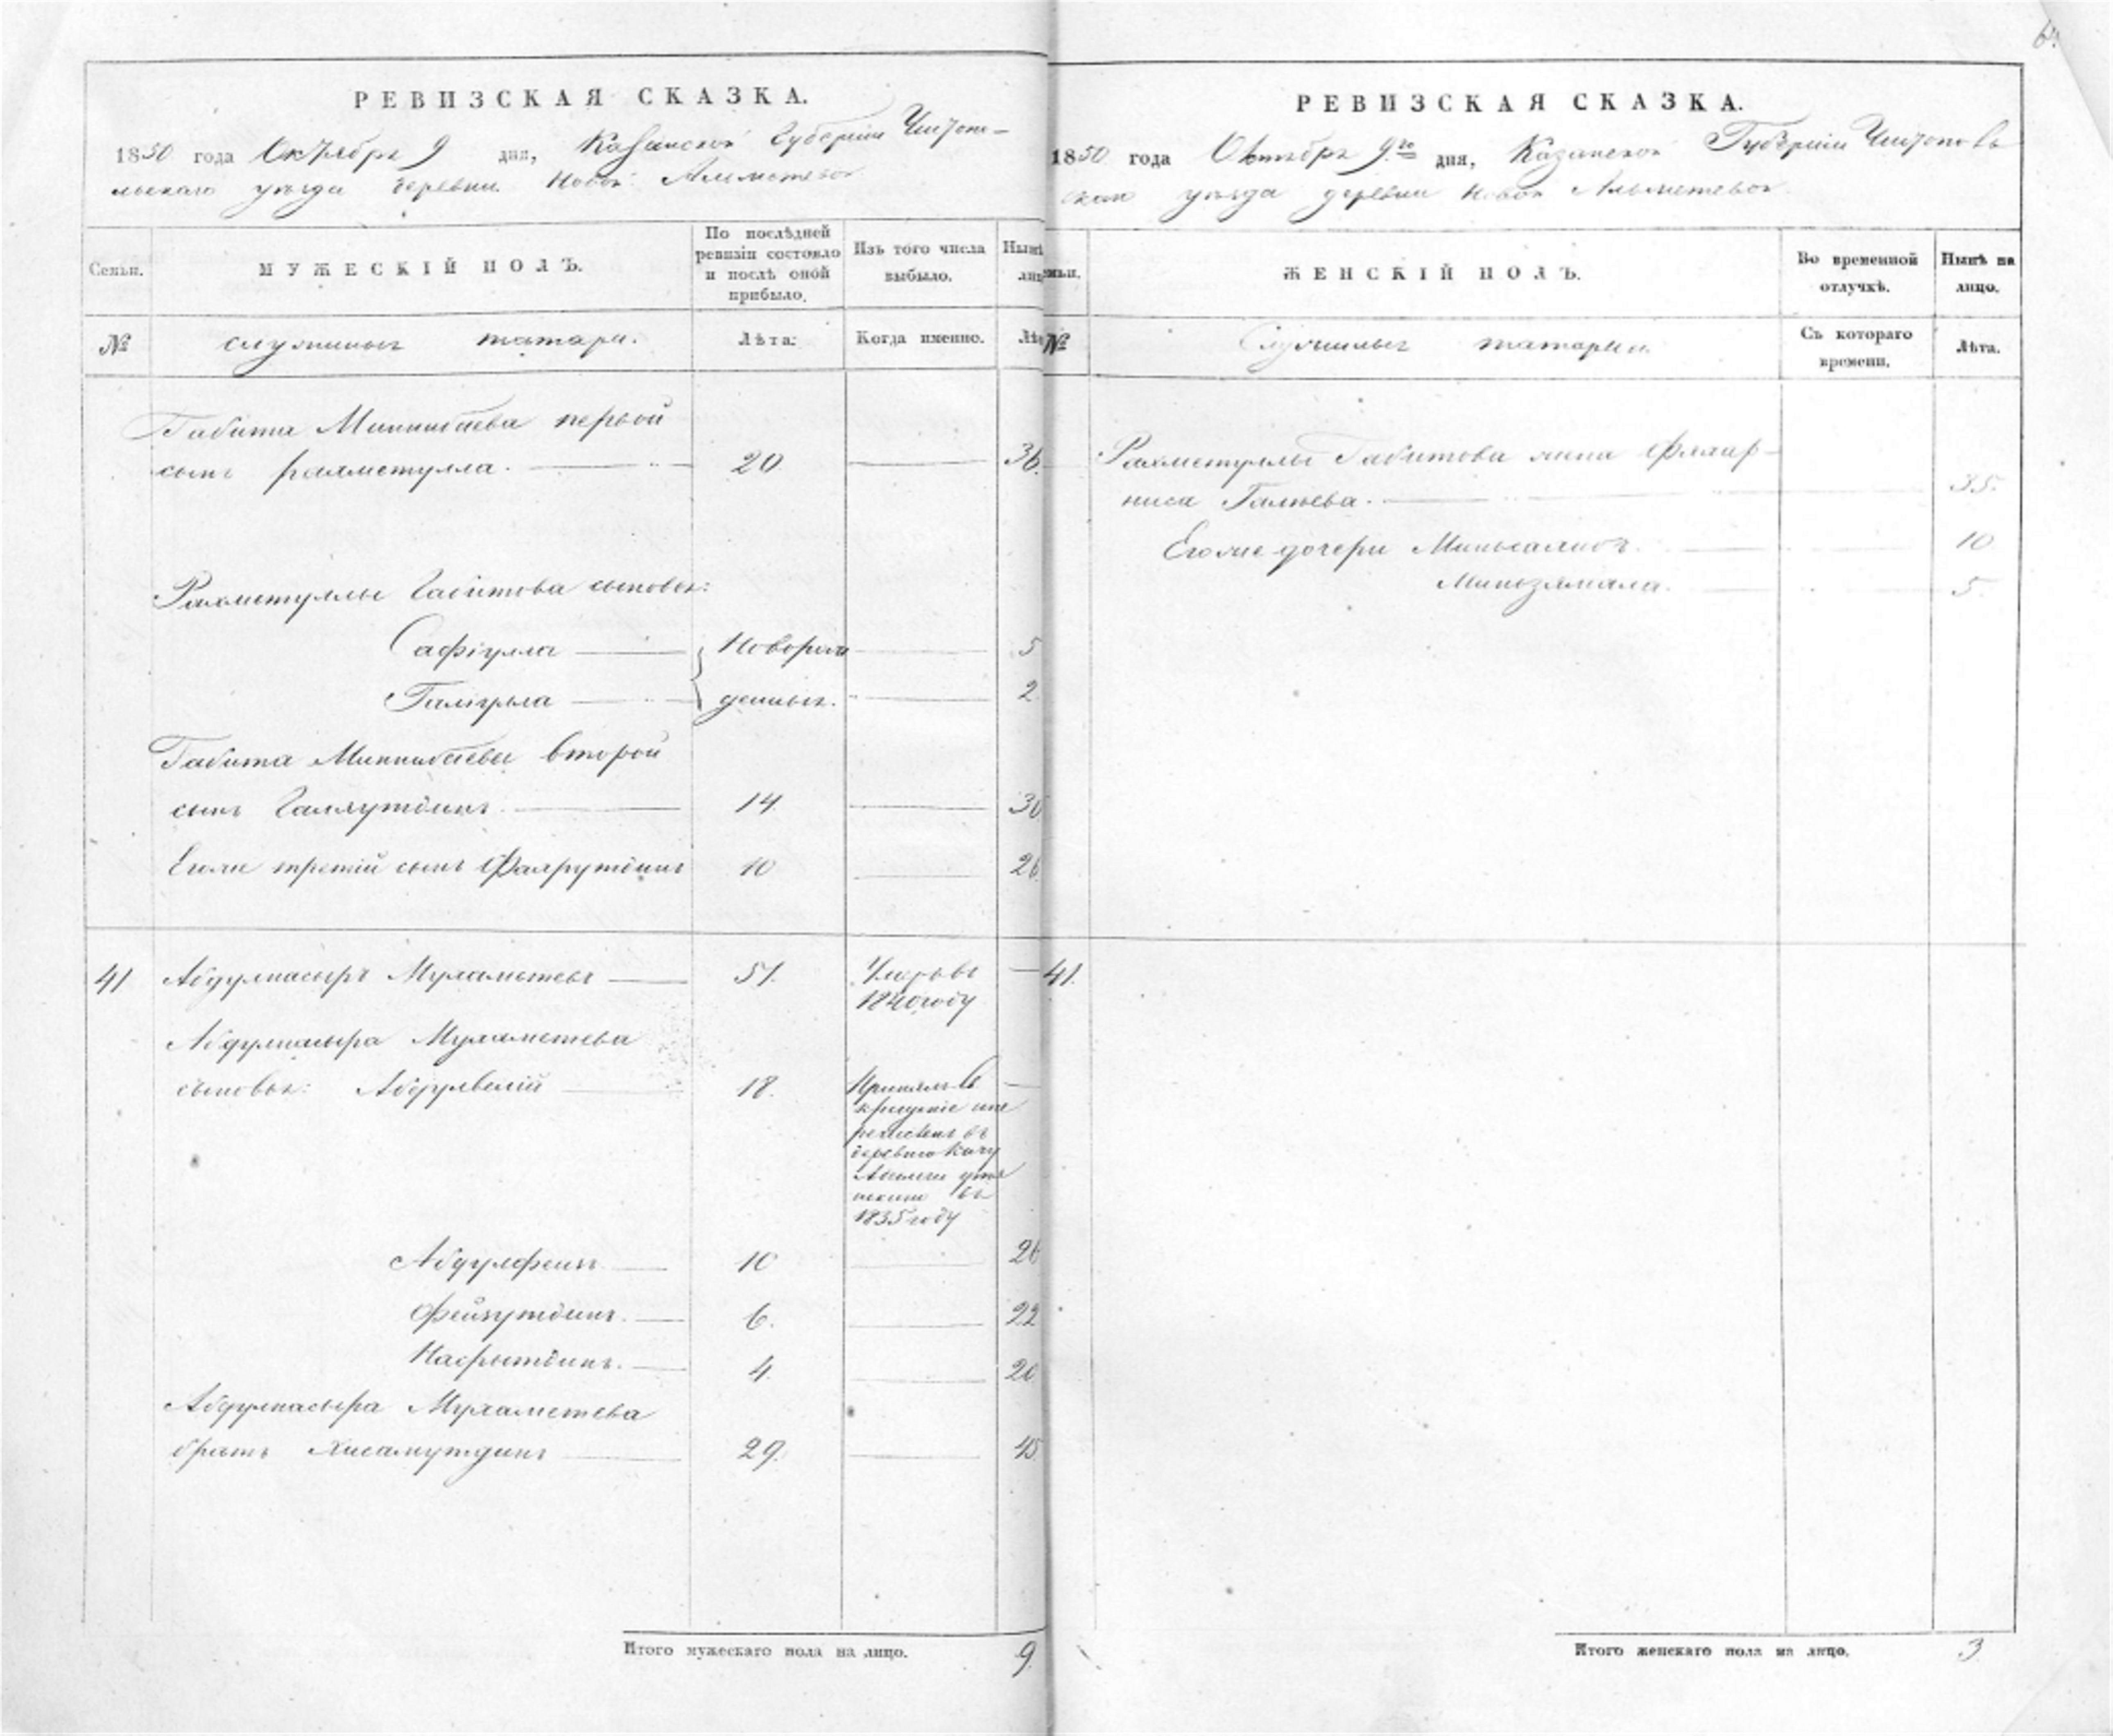 РЕВИЗСКАЯ СКАЗКА.
1850 года Октября 9 дня, Казанской Губернии Чистополь-
скаго уезда деревни Новой Альметевой
Семьи.
МУЖЕСКІЙ ПОЛЪ.
По послѣдней ревизіи состояло и послѣ оной прибыло.
Изъ того числа выбыло.
№
служилыхъ татаръ.
Лѣта.
Когда именно.
Габита Миннибаева первой
сынъ рахметулла. 20 36.
Рахметуллы Габитова сыновья:
Сафіулла Новорож 5
Галіулла денныя. 2
Габита Миннибаева второй
сынъ Галяутдинъ. 14 30
Егоже третій сынъ Фахрутдинъ 10 26
41 Абдулнасыръ Мухаметевъ 51. Умеръ въ
1840 году
Абдулнасыра Мухаметева
сыновья: Абдулвелій 18. Принялъ
крещеніе
въ
деревню
въ
1835 году
10 26
Фейзутдинъ. 6. 22
Насрытдинъ. 4. 20
Абдулнасыра Мухаметева
братъ Хисамутдинъ 29. 45
Итого мужескаго пола на лицо. 9
РЕВИЗСКАЯ СКАЗКА.
1850 года Октября 9го дня, Казанской Губерніи Чистополь
скаго уезда деревни Новой Альметевой
ЖЕНСКІЙ ПОЛЪ.
Во временной отлучкѣ.
Нынѣ на лицо.
№
Служилыхъ татаръ
Съ котораго времени.
Лѣта.
Рахметуллы Габитова жена Фахар-
ниса Галиева. 35.
Егоже дочери 10
Миньзямала. 5.
41.
Итого женскаго пола на лицо. 3